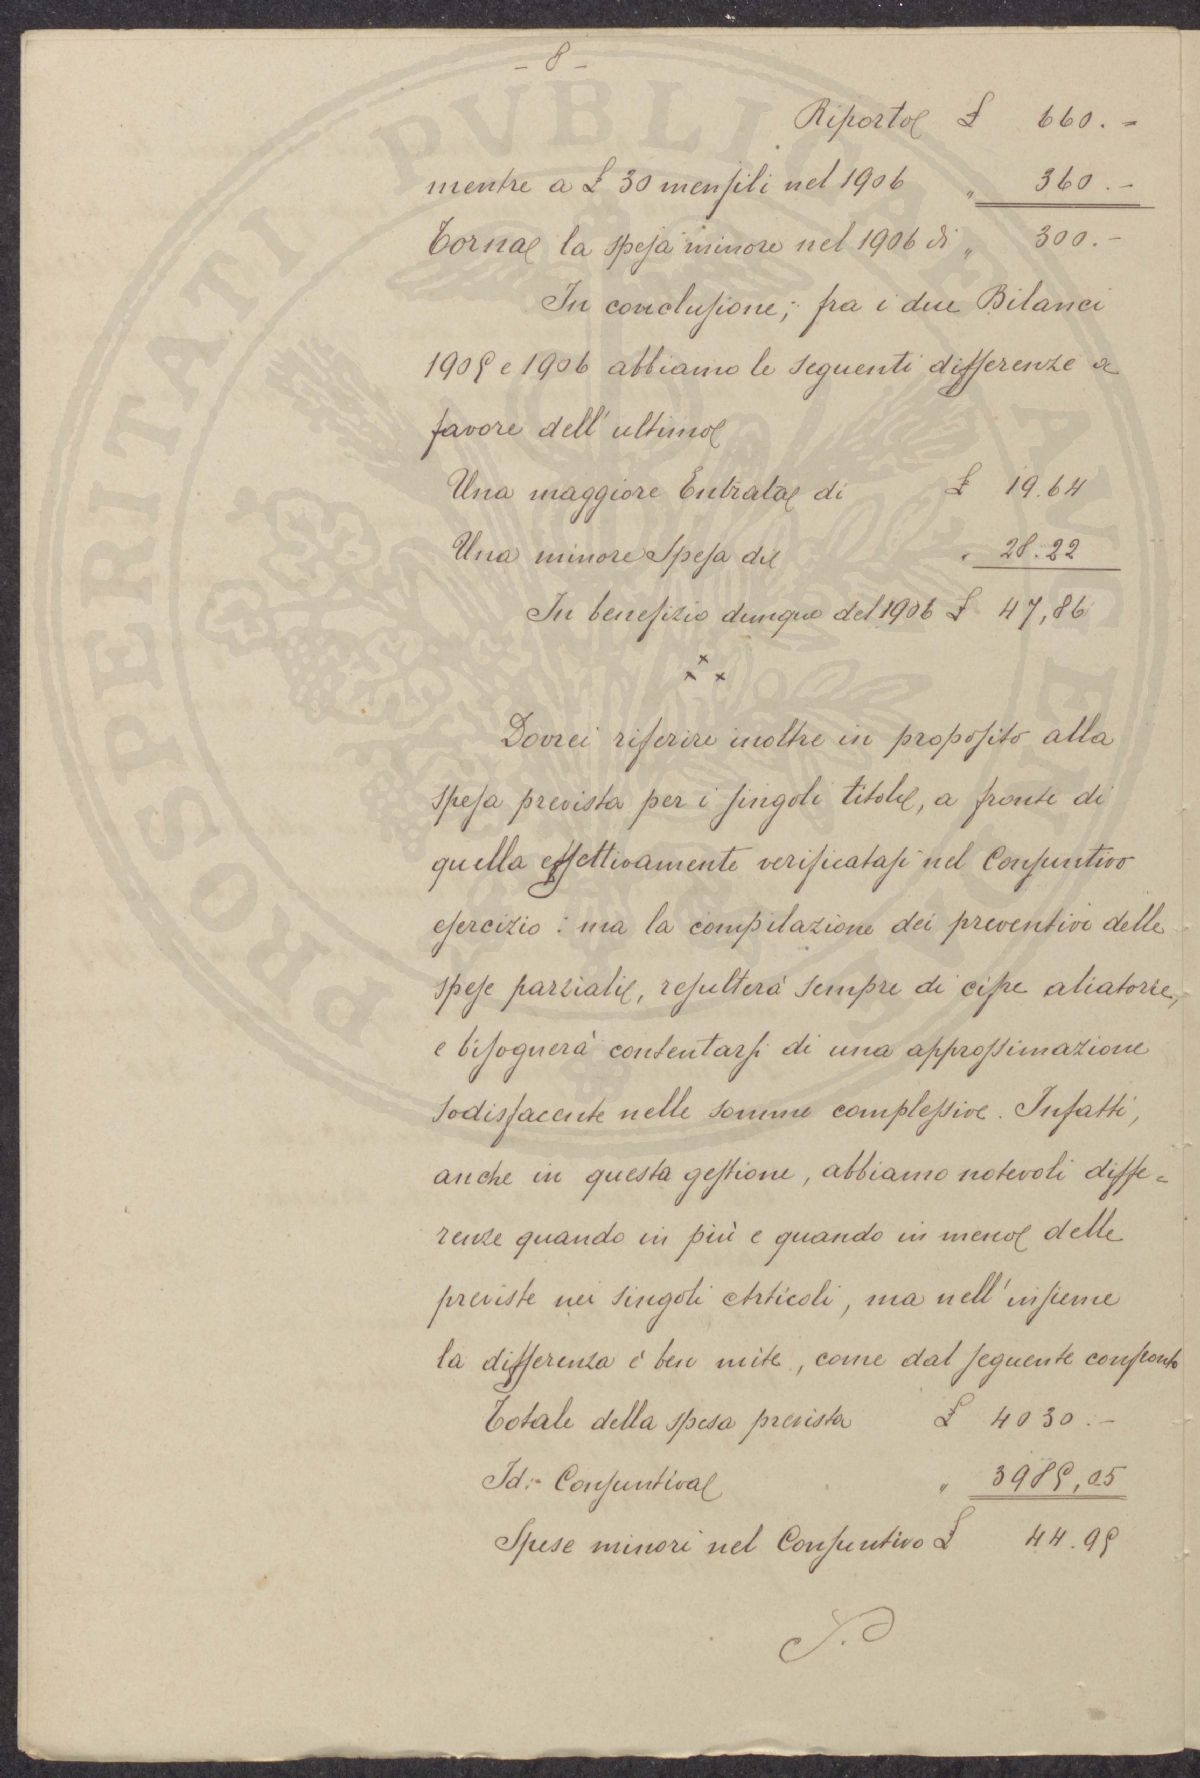 - 8 -
Riporto £ 660. -
mentre a £ 30 mensili nel 1906 " 360. -
Torna la spesa minore nel 1906 di " 300. -
In conclusione, fra i due Bilanci
1905 e 1906 abbiamo le seguenti differenze a
favore dell'ultimo
Una maggiore Entrata di £ 19.64
Una minore Spesa di " 28.22
In benefizio dunque del 1906 £ 47,86
x x x
Dovrei riferire inoltre in proposito alla
spesa prevista per i singoli titoli, a fronte di
quella effettivamente verificatasi nel Consuntivo
esercizio: ma la compilazione dei preventivi delle
spese parziali, resulterà sempre di cifre aliatorie,
e bisognerà contentarsi di una approssimazione
sodisfacente nelle somme complessive. Infatti,
anche in questa gestione, abbiamo notevoli diffe=
renze quando in più e quando in meno delle
previste nei singoli Articoli, ma nell'insieme
la differenza è ben mite, come dal seguente confronto
Totale della spesa prevista £ 4030. -
Id: Consuntiva " 3985,05
Spese minori nel Consuntivo £ 44.95
PROSPERITATI PVBLICAE AVGENDAE